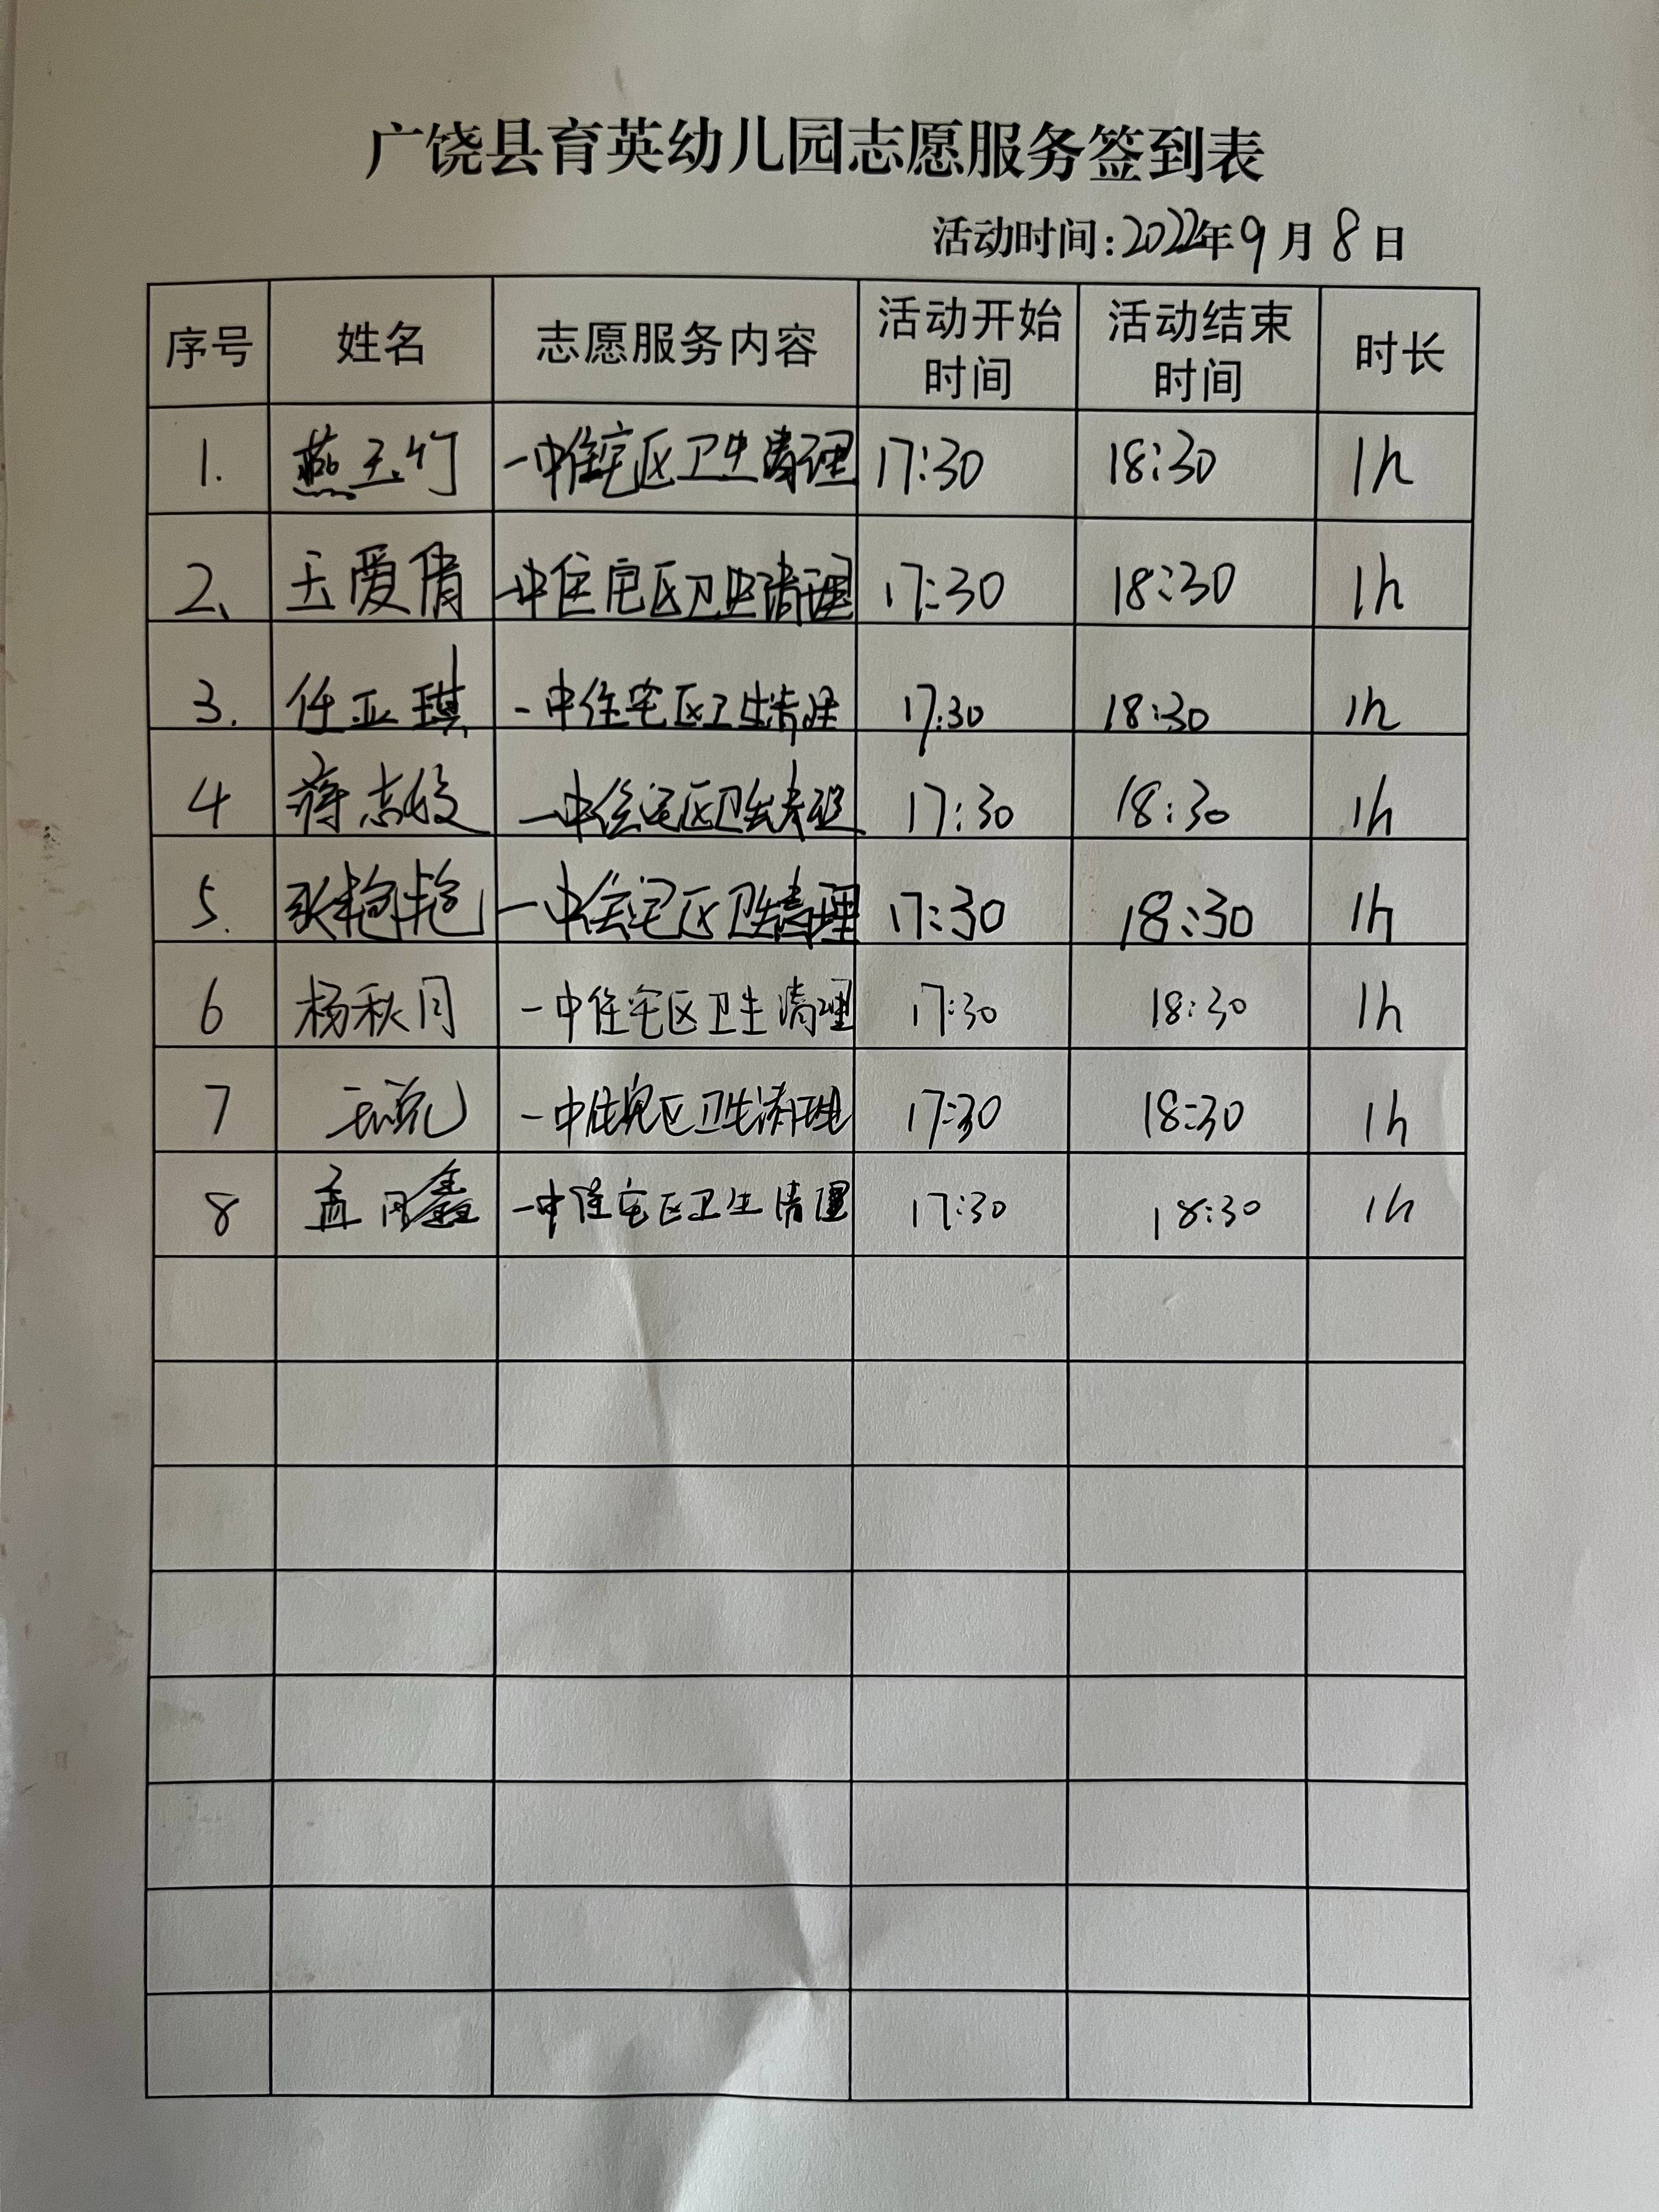 广饶县育英幼儿园志愿服务签到表
活动时间:2022年9月8日
序号 姓名 志愿服务内容 活动开始时间 活动结束时间 时长
1. 燕玉竹 一中住宅区卫生清理 17:30 18:30 1h
2、 王爱倩 一中住宅区卫生清理 17:30 18:30 1h
3. 任亚琪 一中住宅区卫生清理 17:30 18:30 1h
4 蒋志姣 一中住宅区卫生清理 17:30 18:30 1h
5. 张艳艳 一中住宅区卫生清理 17:30 18:30 1h
6 杨秋月 一中住宅区卫生清理 17:30 18:30 1h
7 一中住宅区卫生清理 17:30 18:30 1h
8 盖同鑫 一中住宅区卫生清理 17:30 18:30 1h